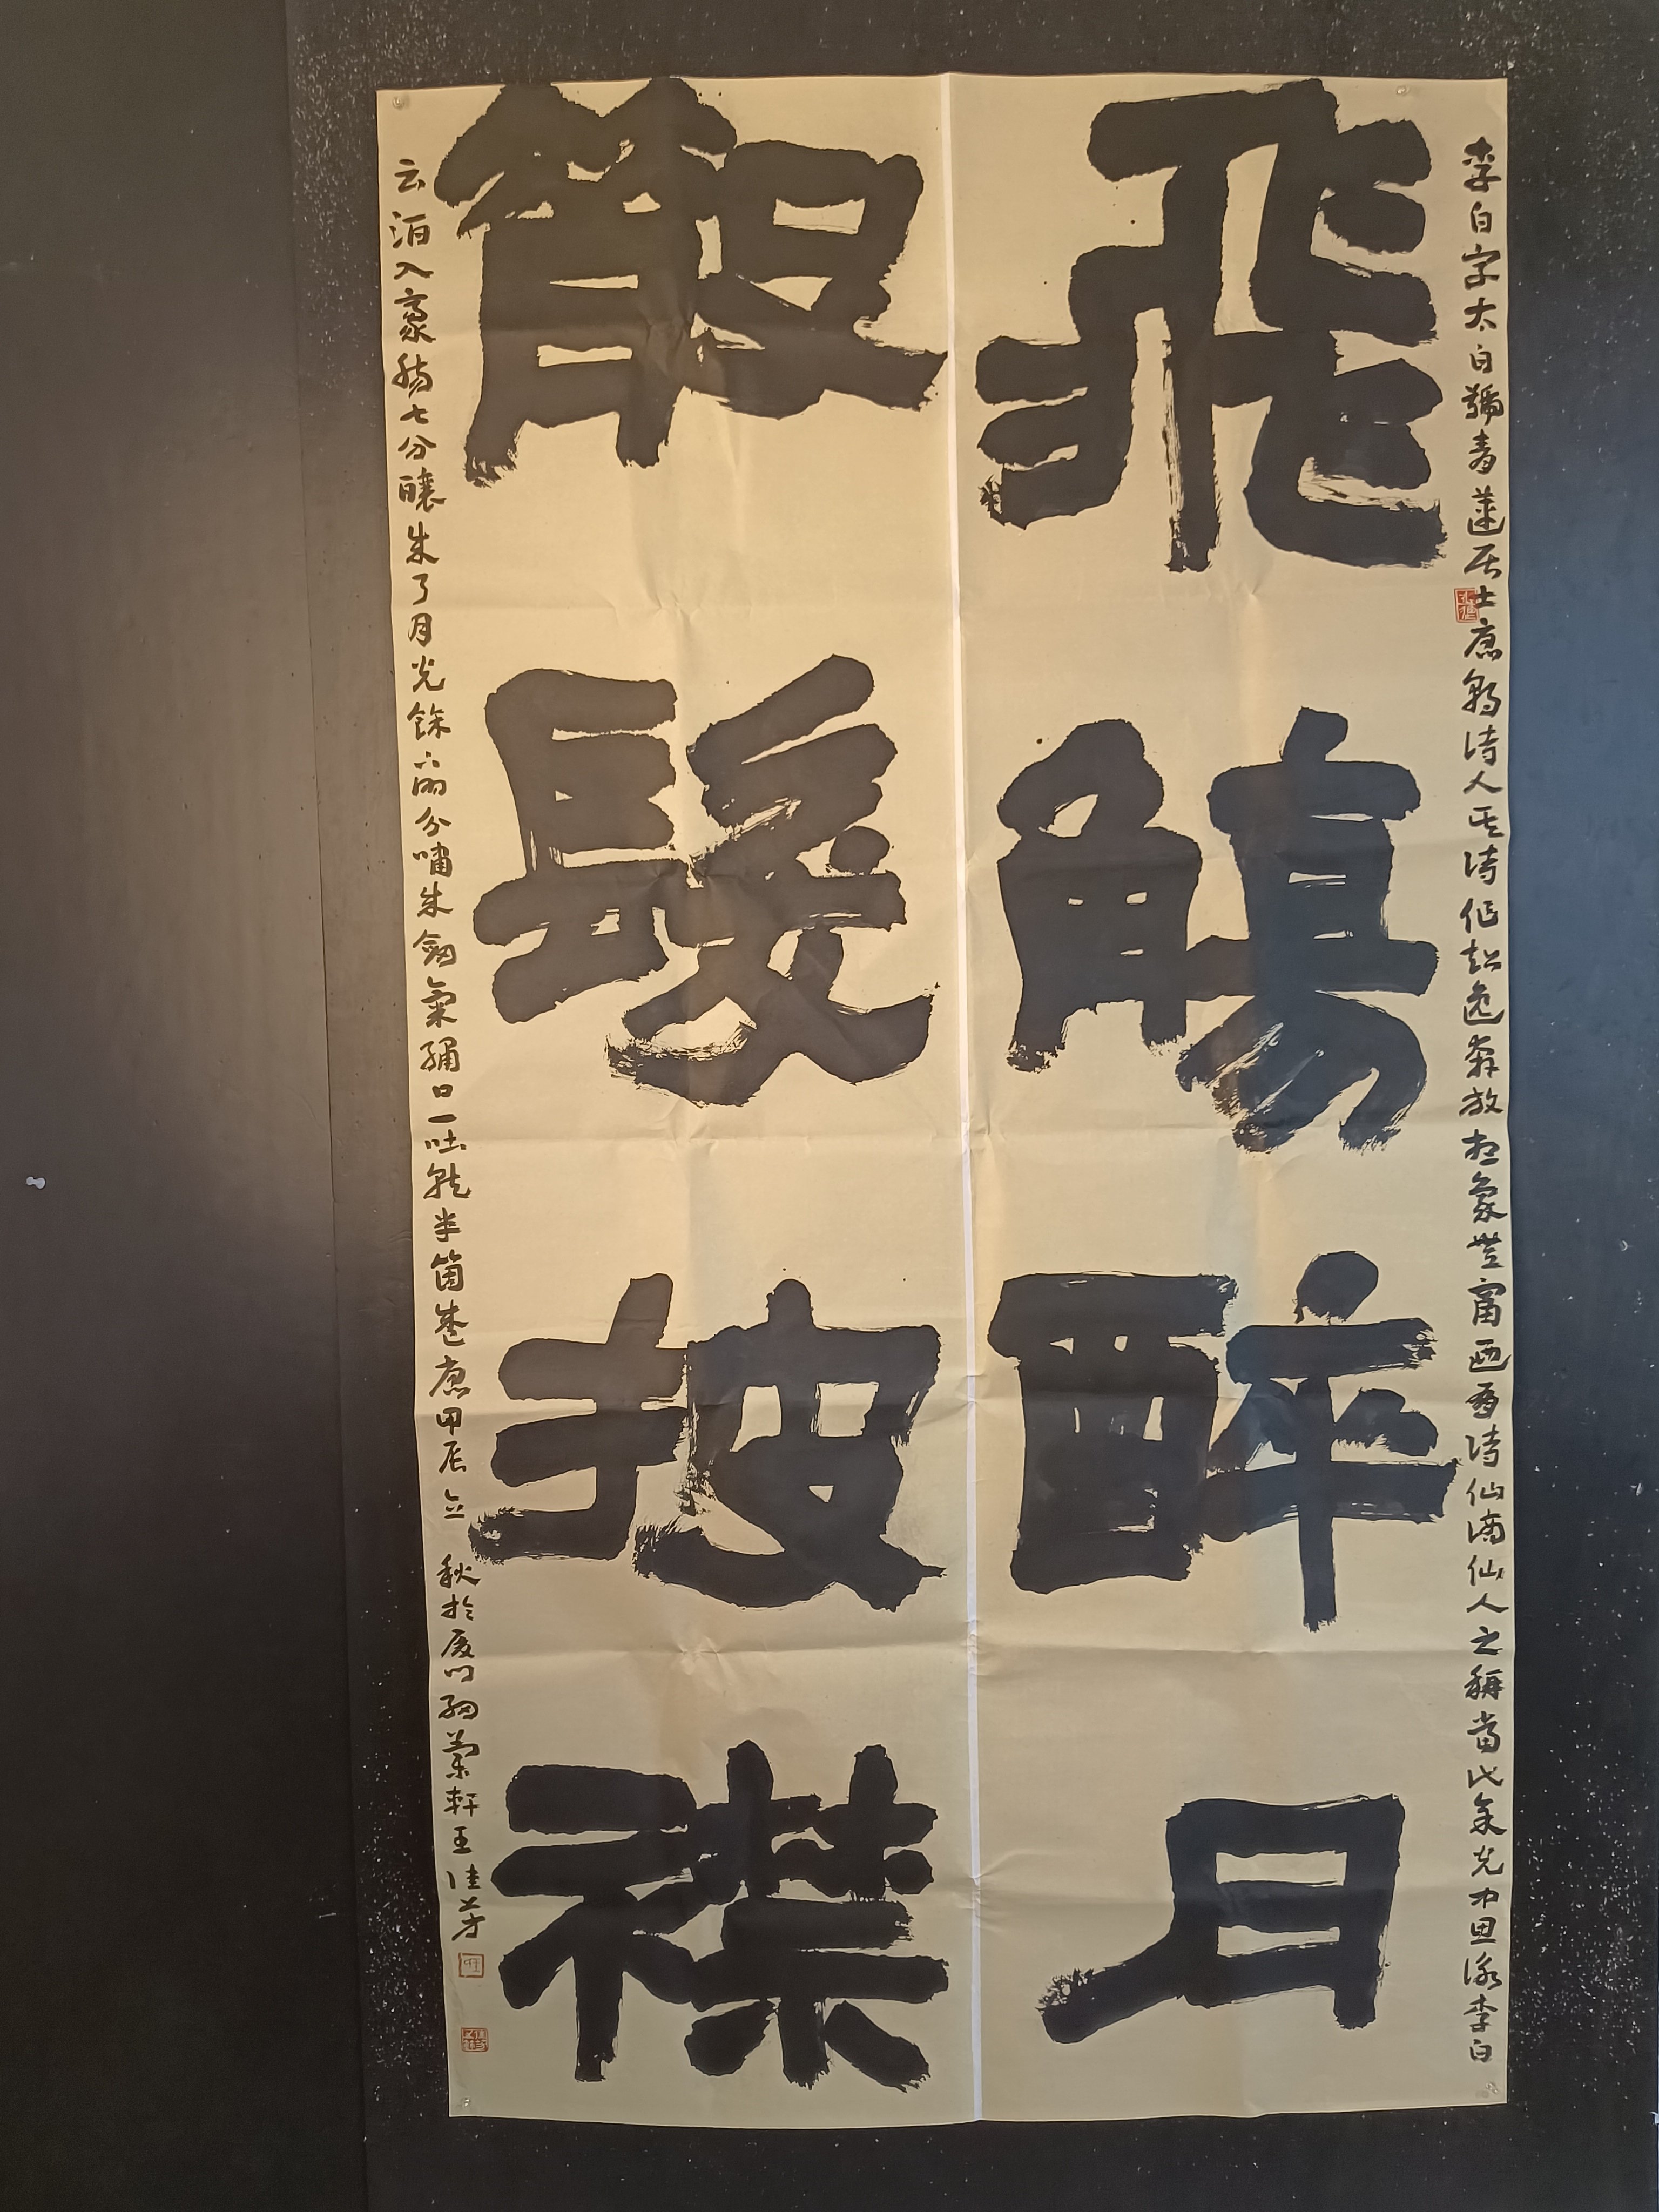 李白字太白號青蓮居士唐朝詩人其詩作超逸奔放想象豐富而有詩仙謫仙人之稱當代余光中詠李白
飛觴醉月
散髮披襟
云酒入豪腸七分釀成了月光餘下兩分嘯成劍氣繡口一吐就半箇盛唐甲辰立秋於廈門紉蘭軒王佳芳